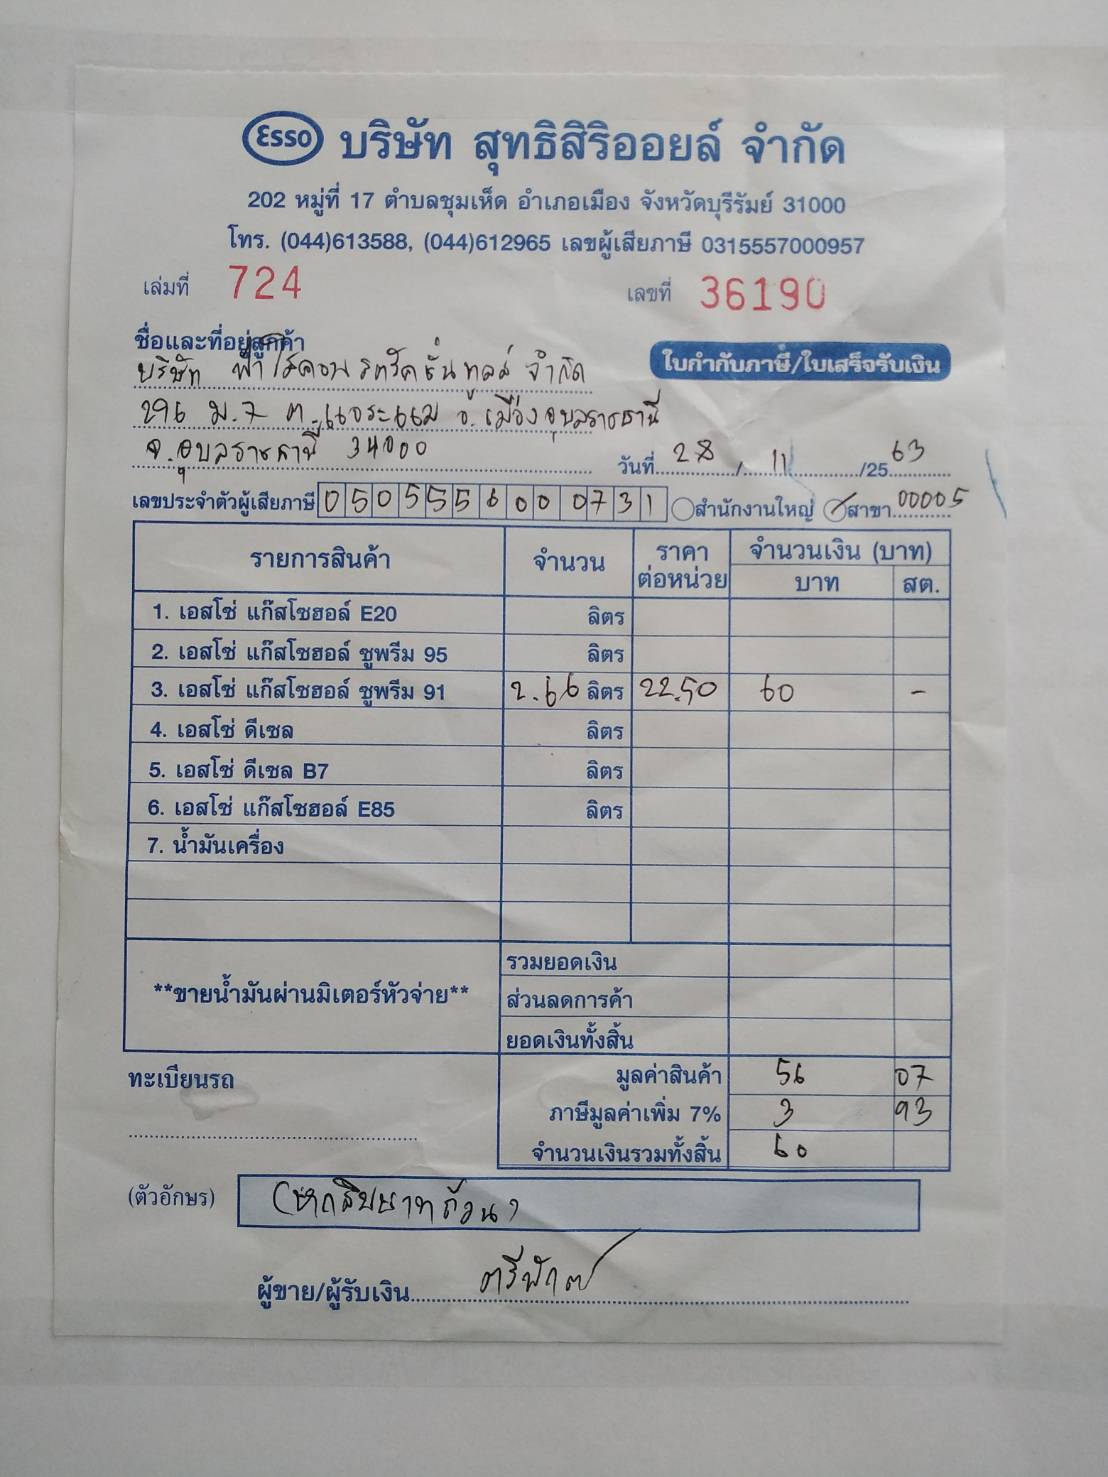 Esso บริษัท สุทธิสิริออยล์ จำกัด
202 หมู่ที่ 17 ตำบลชุมเห็ด อำเภอเมือง จังหวัดบุรีรัมย์ 31000
โทร. (044)613588, (044)612965 เลขผู้เสียภาษี 0315557000957
เล่มที่ 724 เลขที่ 36190
ชื่อและที่อยู่ลูกค้า
บริษัท ฟาโรห์คอนสตรัคชั่นทูลส์ จำกัด
ใบกำกับภาษี/ใบเสร็จรับเงิน
296 ม.7 ต.แจระแม อ.เมืองอุบลราชธานี
จ.อุบลราชธานี 34000
วันที่ 28 / 11 /25 63
เลขประจำตัวผู้เสียภาษี 0505556000731 สำนักงานใหญ่ สาขา 00005
รายการสินค้า จำนวน ราคาต่อหน่วย จำนวนเงิน (บาท)
บาท สต.
1. เอสโซ่ แก๊สโซฮอล์ E20 ลิตร
2. เอสโซ่ แก๊สโซฮอล์ ซูพรีม 95 ลิตร
3. เอสโซ่ แก๊สโซฮอล์ ซูพรีม 91 2.66 ลิตร 22.50 60 -
4. เอสโซ่ ดีเซล ลิตร
5. เอสโซ่ ดีเซล B7 ลิตร
6. เอสโซ่ แก๊สโซฮอล์ E85 ลิตร
7. น้ำมันเครื่อง
รวมยอดเงิน
**ขายน้ำมันผ่านมิเตอร์หัวจ่าย**
ส่วนลดการค้า
ยอดเงินทั้งสิ้น
ทะเบียนรถ
มูลค่าสินค้า 56 07
ภาษีมูลค่าเพิ่ม 7% 3 93
จำนวนเงินรวมทั้งสิ้น 60
(ตัวอักษร) (หกสิบบาทถ้วน)
ผู้ขาย/ผู้รับเงิน